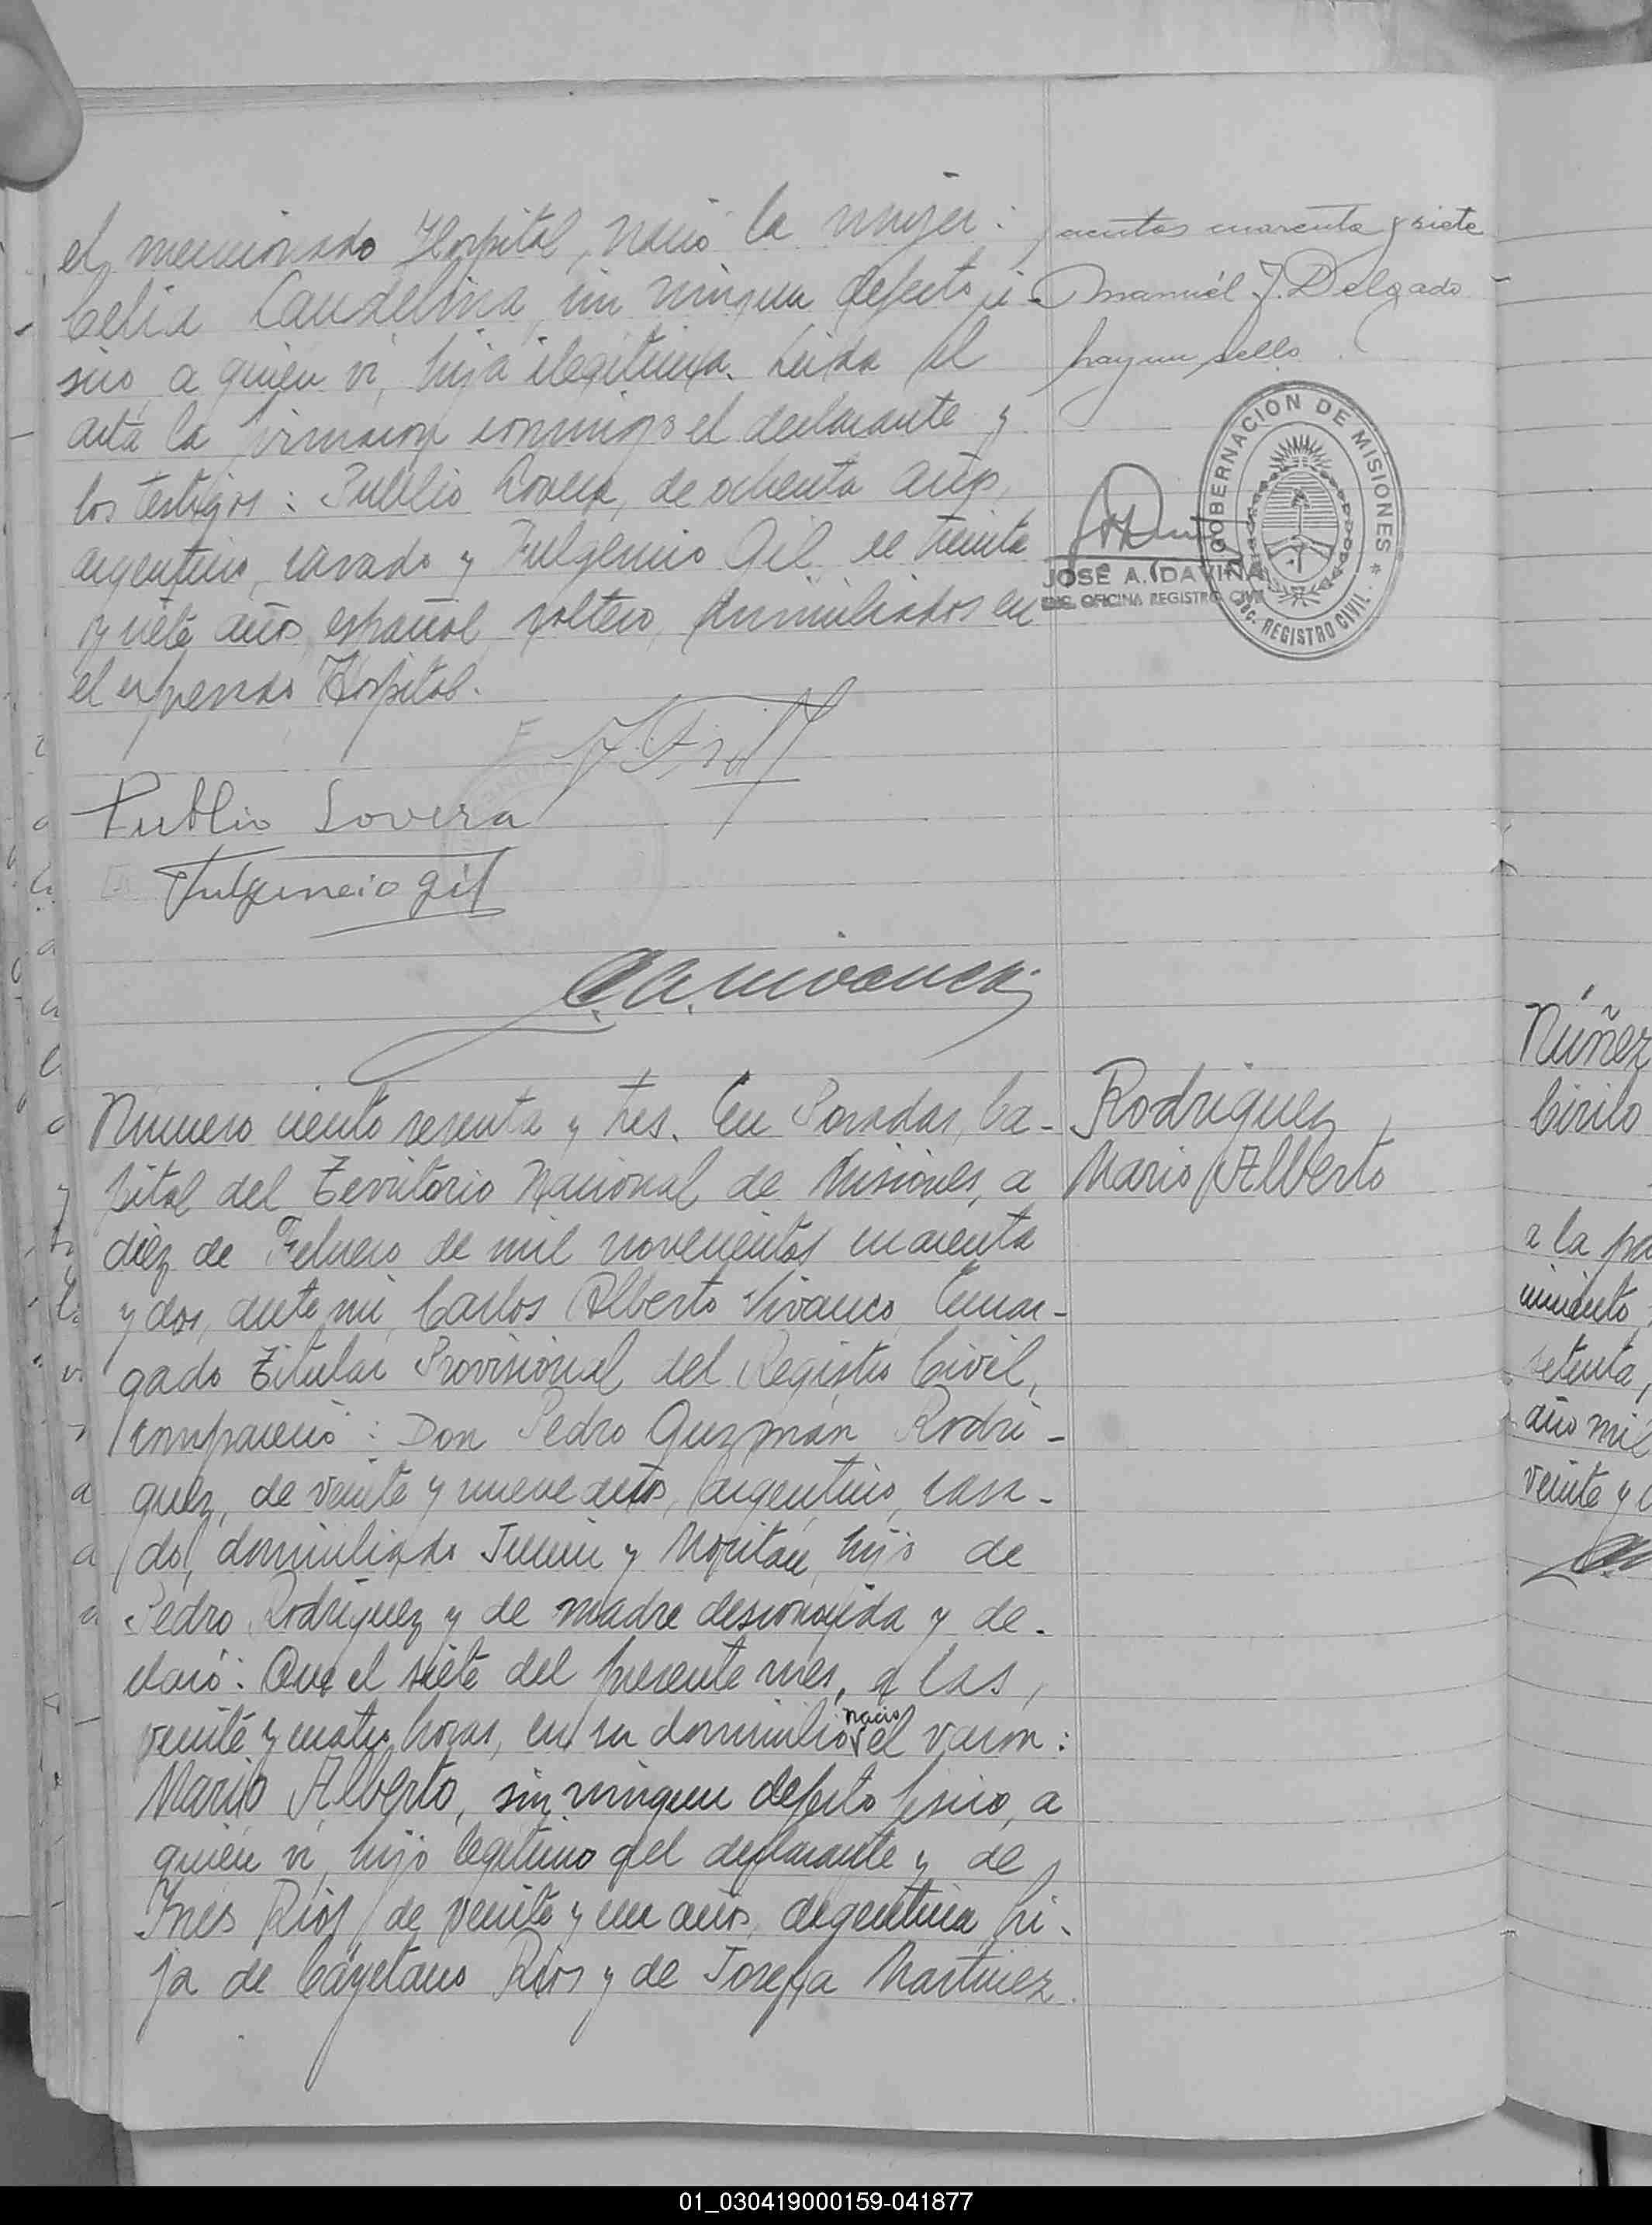 el mencionado Hospital, nació la mujer:
Celia Candelina, sin ningun defecto fí-
sico, a quien ví, hija ilegitima. Leida el
acta la firmaron conmigo el declarante y
los testigos: Publio Lovera, de ochenta años,
argentino, casado y Fulgencio Gil de treinta
y siete años, español, soltero, domiciliados en
el expresado Hospital.
Publio Lovera
Fulgencio Gil
C. A. Vivanco
cientos cuarenta y siete
Manuél J. Delgado
hay un sello
GOBERNACION DE MISIONES *
REGISTRO CIVIL
JOSÉ A. DAVIÑA
ENC. OFICINA REGISTRO CIVIL
Número ciento sesenta y tres. En Posadas, Ca-
pital del Territorio Nacional de Misiones, a
diez de Febrero de mil novecientos cuarenta
y dos, ante mi, Carlos Alberto Vivanco, Encar-
gado Titular Provisional del Registro Civil,
compareció: Don Pedro Guzmán Rodri-
guez, de veinte y nueve años, argentino, casa-
do, domiciliado Junin y Moritán, hijo de
Pedro Rodriguez y de madre desconocida y de-
claró: Que el siete del presente mes, a las
veinte y cuatro horas, en su domicilio nació el varon:
Mario Alberto, sin ningun defecto fisico, a
quien ví, hijo legítimo del declarante y de
Inés Rios, de veinte y un años, argentina, hi-
ja de Cayetano Rios y de Josefa Martinez.
Rodriguez,
Mario Alberto
Núñez
Cirilo
a la
setenta,
año mil
veinte y
01_030419000159-041877